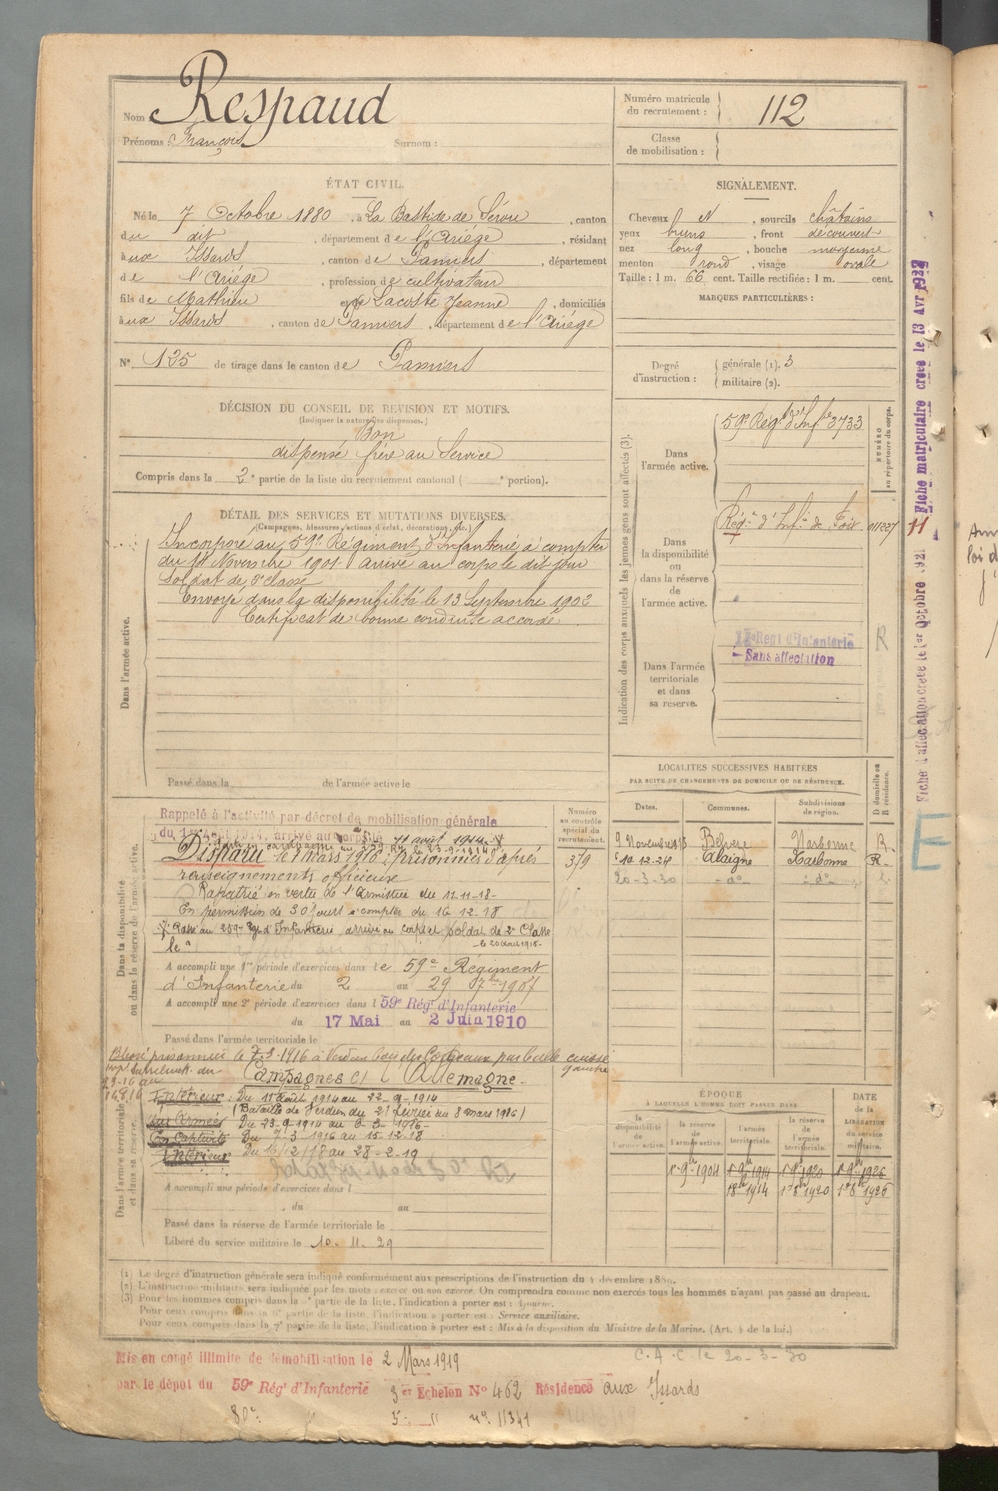 Nom Respaud
Prénoms : François Surnom :
Numéro matricule du recrutement : 112
Classe de mobilisation :
ÉTAT CIVIL.
Né le 7 Octobre 1880, à La Bastide de Sérou, canton
du dit, département de l'Ariège, résidant
aux Issards, canton de Pamiers, département
de l'Ariège, profession de cultivateur
fils de Mathieu et de Lacoste Jeanne, domiciliés
aux Issards, canton de Pamiers, département de l'Ariège
N° 125 de tirage dans le canton de Pamiers
SIGNALEMENT.
Cheveux N, sourcils châtains
yeux bruns, front découvert
nez long, bouche moyenne
menton rond, visage ovale
Taille : 1 m. 66 cent. Taille rectifiée : 1 m. cent.
MARQUES PARTICULIÈRES :
Degré d'instruction : générale (1). 3
militaire (2).
DÉCISION DU CONSEIL DE REVISION ET MOTIFS.
(Indiquer la nature des dispenses.)
Bon
dispensé frère au Service
Compris dans la 2e partie de la liste du recrutement cantonal ( e portion).
DÉTAIL DES SERVICES ET MUTATIONS DIVERSES.
(Campagnes, blessures, actions d'éclat, décorations, etc.)
Dans l'armée active.
Incorporé au 59e Régiment d'Infanterie à compter
du Novembre 1901 arrivé au corps le dit jour
Soldat de 2e classe
Envoyé dans la disponibilité le 13 Septembre 1902
Certificat de bonne conduite accordé
Passé dans la de l'armée active le
Indication des corps auxquels les jeunes gens sont affectés (3).
NUMÉRO au répertoire du corps.
Dans l'armée active.
59e Régt d'Infie 3733
Dans la disponibilité ou dans la réserve de l'armée active.
Régt d'Infie de Foix
Dans l'armée territoriale et dans sa réserve.
Regt d'Infanterie
Sans affectation
R
Fiche d'affectation créée le 1er Octobre 1921
11
Fiche matriculaire créée le 13 Avr 1927
E
LOCALITÉS SUCCESSIVES HABITÉES
PAR SUITE DE CHANGEMENTS DE DOMICILE OU DE RÉSIDENCE.
Dates. Communes. Subdivisions de région. D domicile ou R résidence.
9 Novembre Belvèze Narbonne R.
10-12-24 Alaigne Narbonne R.
20-3-30 - do - - do -
Dans la disponibilité ou dans la réserve de l'armée active.
Numéro au contrôle spécial du recrutement.
379
Rappelé à l'activité par décret de mobilisation générale
du 1er Août 1914, arrivé au corps le 11 août 1914
Disparu le 8 mars 1916 : prisonnier d'après
renseignements officieux
Rapatrié en vertu de l'Armistice du 11-11-18-
En permission de 30 jours à compter du 16-12-18
Passé au 259e Régt d'Infanterie, arrivé au corps et soldat de 2e Classe
le
A accompli une 1re période d'exercices dans le 59e Régiment
d'Infanterie du 2 au 29 7bre 1907
A accompli une 2e période d'exercices dans l 59e Rég d'Infanterie
du 17 Mai au 2 Juin 1910
Passé dans l'armée territoriale le
Dans l'armée territoriale et dans sa réserve.
Blessé prisonnier le 7-3-1916 à Verdun bois des Corbeaux par balle cuisse gauche
Campagnes Ct l'Allemagne.
Intérieur : Du 11 août 1914 au 22-9-1914
(Bataille de Verdun du 21 février au 8 mars 1916)
aux Armées Du 23-9-1914 au 6-3-1916-
En captivité Du 7-3-1916 au 15-12-18
Intérieur Du 16/12/18 au 28-2-19
A accompli une période d'exercices dans l
du au
Passé dans la réserve de l'armée territoriale le
Libéré du service militaire le 10-11-29
ÉPOQUE
À LAQUELLE L'HOMME DOIT PASSER DANS
la disponibilité de l'armée active.
la réserve de l'armée active.
l'armée territoriale.
la réserve de l'armée territoriale.
DATE de la LIBÉRATION du service militaire.
1er 9bre 1904 1er 9bre 1914 1er 9bre 1920 1er 9bre 1926
(1) Le degré d'instruction générale sera indiqué conformément aux prescriptions de l'instruction du 4 décembre 1889.
(2) L'instruction militaire sera indiquée par les mots : exercé ou non exercé. On comprendra comme non exercés tous les hommes n'ayant pas passé au drapeau.
(3) Pour les hommes compris dans la partie de la liste, l'indication à porter est : Ajourné.
Pour ceux compris dans la partie de la liste, l'indication à porter est : Service auxiliaire.
Pour ceux compris dans la 7e partie de la liste, l'indication à porter est : Mis à la disposition du Ministre de la Marine. (Art. 4 de la loi.)
Mis en congé illimité de démobilisation le 2 Mars 1919
C.A.C. le 20-3-30
par le dépôt du 59e Rég d'Infanterie 3er Echelon No 462 Résidence aux Issards